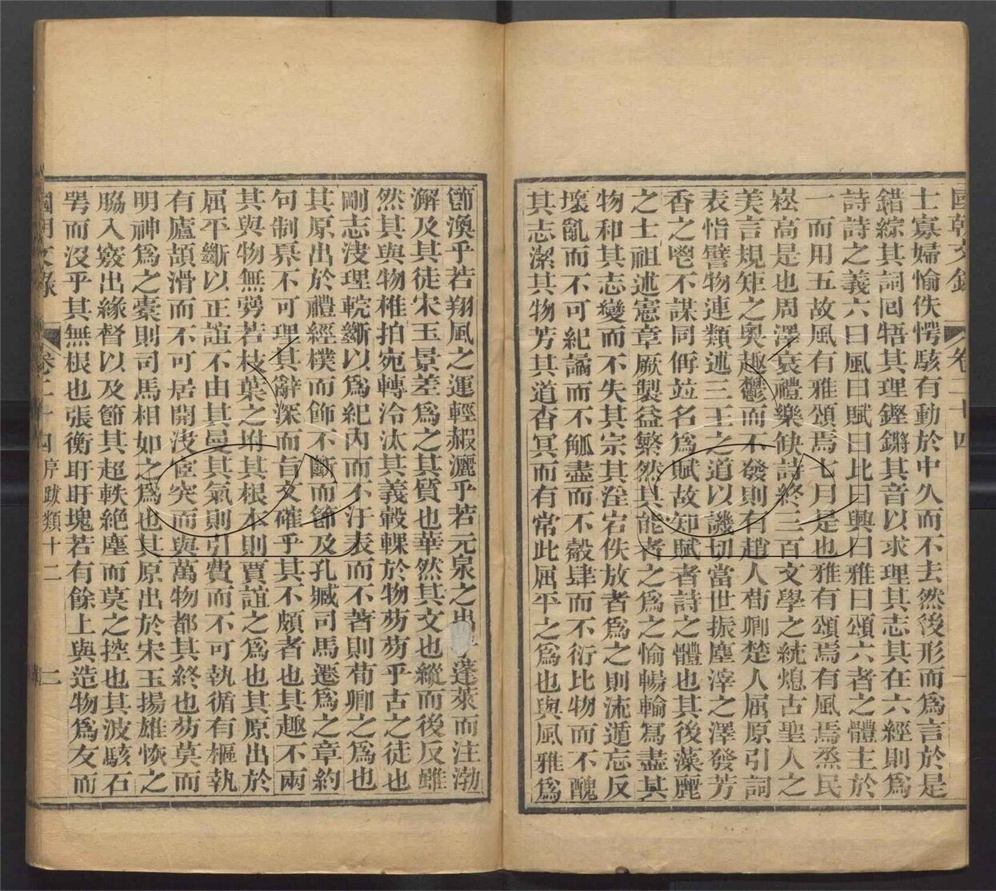 國朝文錄 卷二十四
士寡婦愉佚愕駭有動於中久而不去然後形而爲言於是
錯綜其詞囘牾其理鏗鏘其音以求理其志其在六經則爲
詩詩之義六曰風曰賦曰比曰興曰雅曰頌六者之體主於
一而用五故風有雅頌焉七月是也雅有頌焉有風焉烝民
崧高是也周澤衰禮樂缺詩終三百文學之統熄古聖人之
美言規矩之奧趣鬱而不發則有趙人荀卿楚人屈原引詞
表恉譬物連類述三王之道以譏切當世振塵滓之澤發芳
香之鬯不謀同偁竝名爲賦故知賦者詩之體也其後藻麗
之士祖述憲章厥製益繁然其能者之爲之愉暢輸寫盡其
物和其志變而不失其宗其淫宕佚放者爲之則流遁忘反
壞亂而不可紀譎而不觚盡而不觳肆而不衍比物而不醜
其志潔其物芳其道杳冥而有常此屈平之爲也與風雅爲
節渙乎若翔風之運輕赮灑乎若元泉之出 蓬萊而注渤
澥及其徒宋玉景差爲之其質也華然其文也縱而後反雖
然其與物椎拍宛轉泠汰其義轂輠於物芴芴乎古之徒也
剛志決理輐斷以爲紀內而不汙表而不著則荀卿之爲也
其原出於禮經樸而飾不斷而節及孔臧司馬遷爲之章約
句制奡不可理其辭深而旨文確乎其不頗者也其趣不兩
其與物無㝑若枝葉之坿其根本則賈誼之爲也其原出於
屈平斷以正誼不由其曼其氣則引費而不可執循有樞執
有廬頡滑而不可居開決宧突而與萬物都其終也芴莫而
明神爲之橐則司馬相如之爲也其原出於宋玉揚雄恢之
脇入竅出緣督以及節其超軼絕塵而莫之控也其波駭石
㗉而沒乎其無根也張衡盱盱塊若有餘上與造物爲友而
國朝文錄 卷二十四 序跋類十二 一